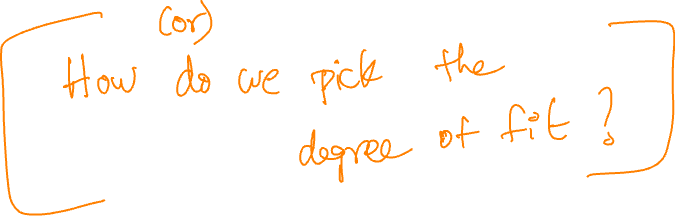 (or)
How do we pick the
degree of fit?